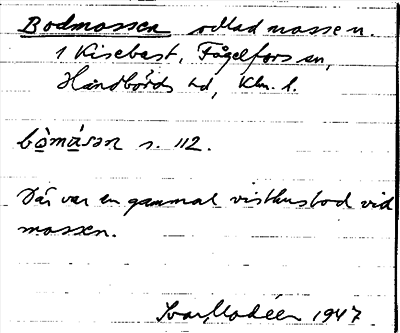 Bodmossen odlad mosse n.
1 Kisebast, Fågelfors sn,
Handbörds hd, Klm. l.
bò̀màsən s. 112.
Där var en gammal visthusbod vid
mossen.
Ivar Modéer 1947.